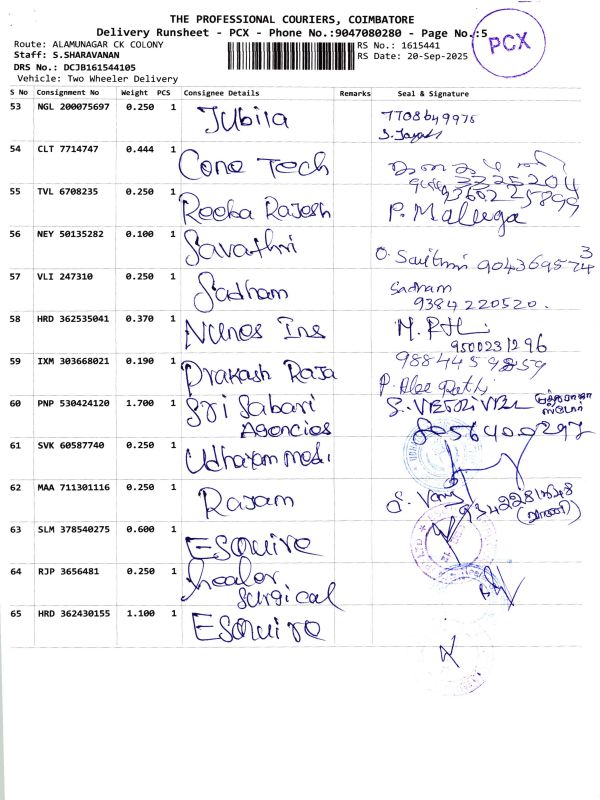 THE PROFESSIONAL COURIERS, COIMBATORE
Delivery Runsheet - PCX - Phone No.:9047080280 - Page No.:5
PCX
Route: ALAMUNAGAR CK COLONY
RS No.: 1615441
Staff: S.SHARAVANAN
RS Date: 20-Sep-2025
DRS No.: DCJB161544105
Vehicle: Two Wheeler Delivery
S No Consignment No Weight PCS Consignee Details Remarks Seal & Signature
53 NGL 200075697 0.250 1 Jubila 7708649975
54 CLT 7714747 0.444 1 Cone Tech
55 TVL 6708235 0.250 1 Reeba Rajesh P. Maluga
56 NEY 50135282 0.100 1 Savathri
57 VLI 247310 0.250 1 Sadham Sadham
9384220520.
58 HRD 362535041 0.370 1 Nunes Ins
9500231296
59 IXM 303668021 0.190 1 Prakash Raja
60 PNP 530424120 1.700 1 Sri Sabari
Agencies
8056400297
61 SVK 60587740 0.250 1 Udhayam medi
62 MAA 711301116 0.250 1 Rajam
63 SLM 378540275 0.600 1 Esquire
64 RJP 3656481 0.250 1 healer
surgical
65 HRD 362430155 1.100 1 Esquire